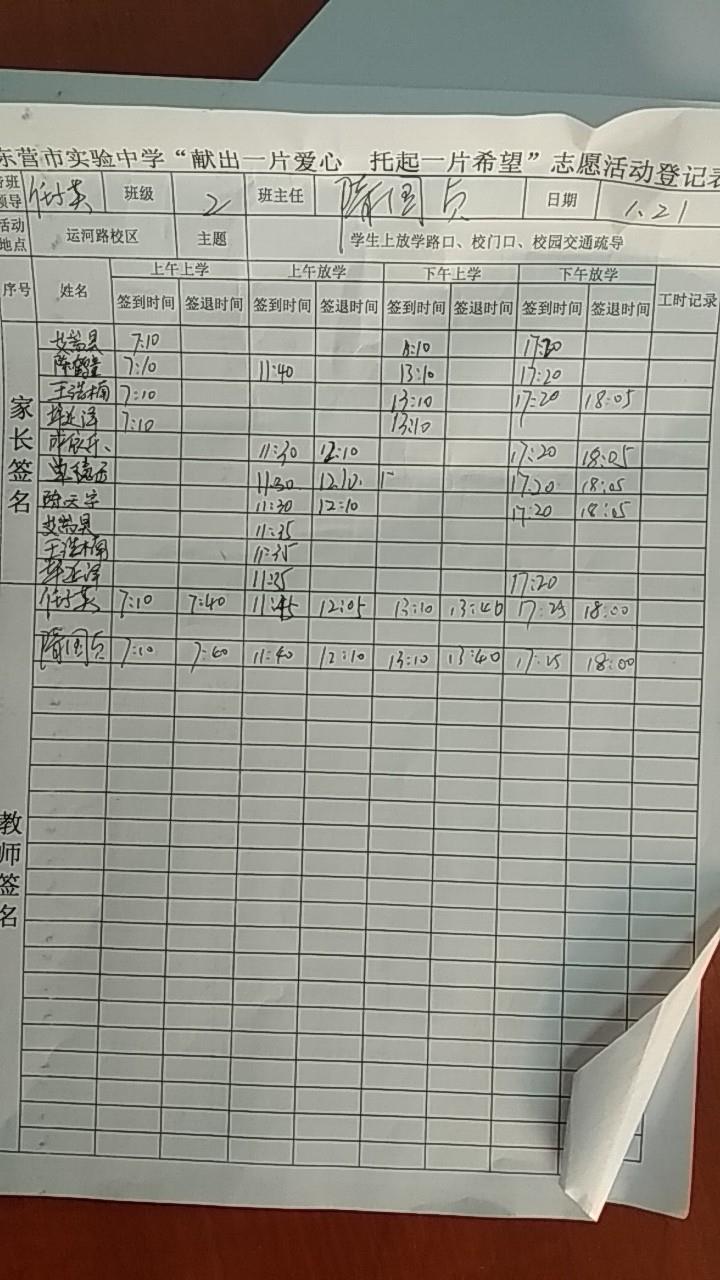 东营市实验中学“献出一片爱心 托起一片希望”志愿活动登记表
班 领导 班级 2 班主任 隋国贞 日期 1.21
活动地点 运河路校区 主题 学生上放学路口、校门口、校园交通疏导
序号 姓名 上午上学 上午放学 下午上学 下午放学 工时记录
签到时间 签退时间 签到时间 签退时间 签到时间 签退时间 签到时间 签退时间
家长签名
7:10 17:20
陈 7:10 11:40 13:10 17:20
王浩楠 7:10 13:10 17:20 18:05
7:10 13:10
11:30 12:10 17:20 18:05
11:30 12:10 17:20 18:05
陈天宇 11:30 12:10 17:20 18:05
11:35
王浩楠 11:35
11:35 17:20
教师签名
7:10 7:40 12:05 13:10 13:40 18:00
隋国贞 7:10 7:40 11:40 12:10 13:10 13:40 17:25 18:00